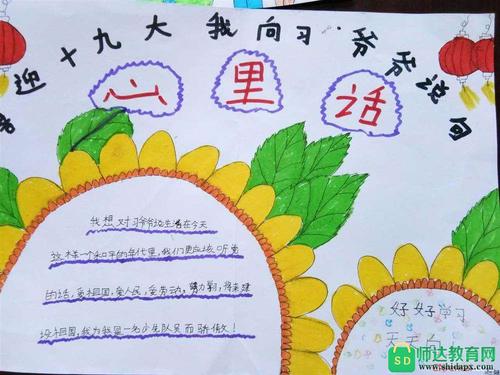 迎十九大 我向习爷爷说句
心里话
我想对习爷爷说生活在今天
这样一个和平的年代里,我们更应该听党
的话,爱祖国,爱人民,爱劳动,努力学习,将来建
设祖国,我为我是一名少先队员而骄傲!
好好学习
天天向上
师达教育网
www.shidapx.com
SD